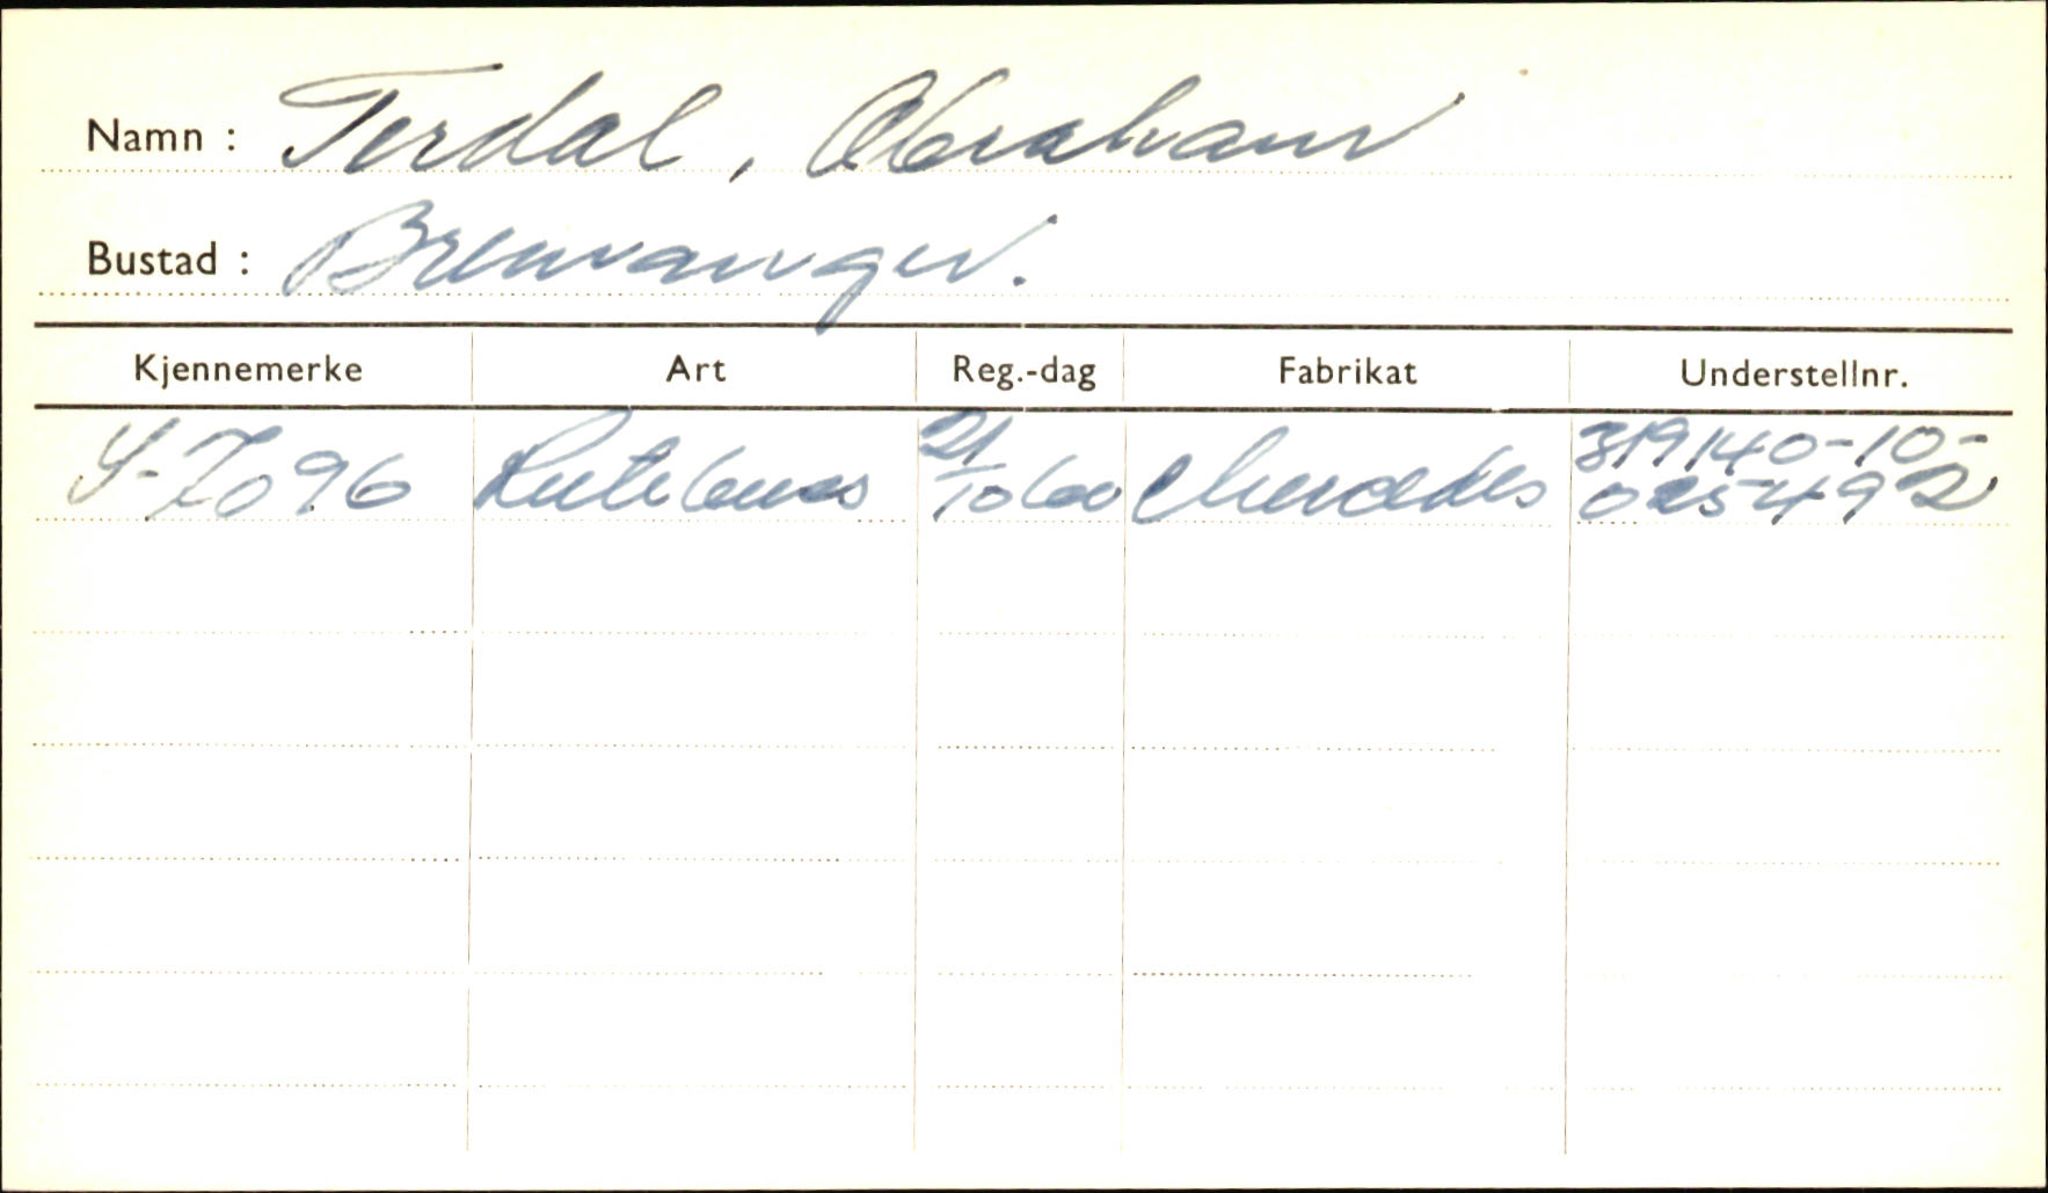 Namn : Terdal, Abraham
Bustad : Bremanger.
Kjennemerke Art Reg.-dag Fabrikat Understellnr.
S-7096 Rutebuss 21/10 60 Mercedes 319140-10-
025492